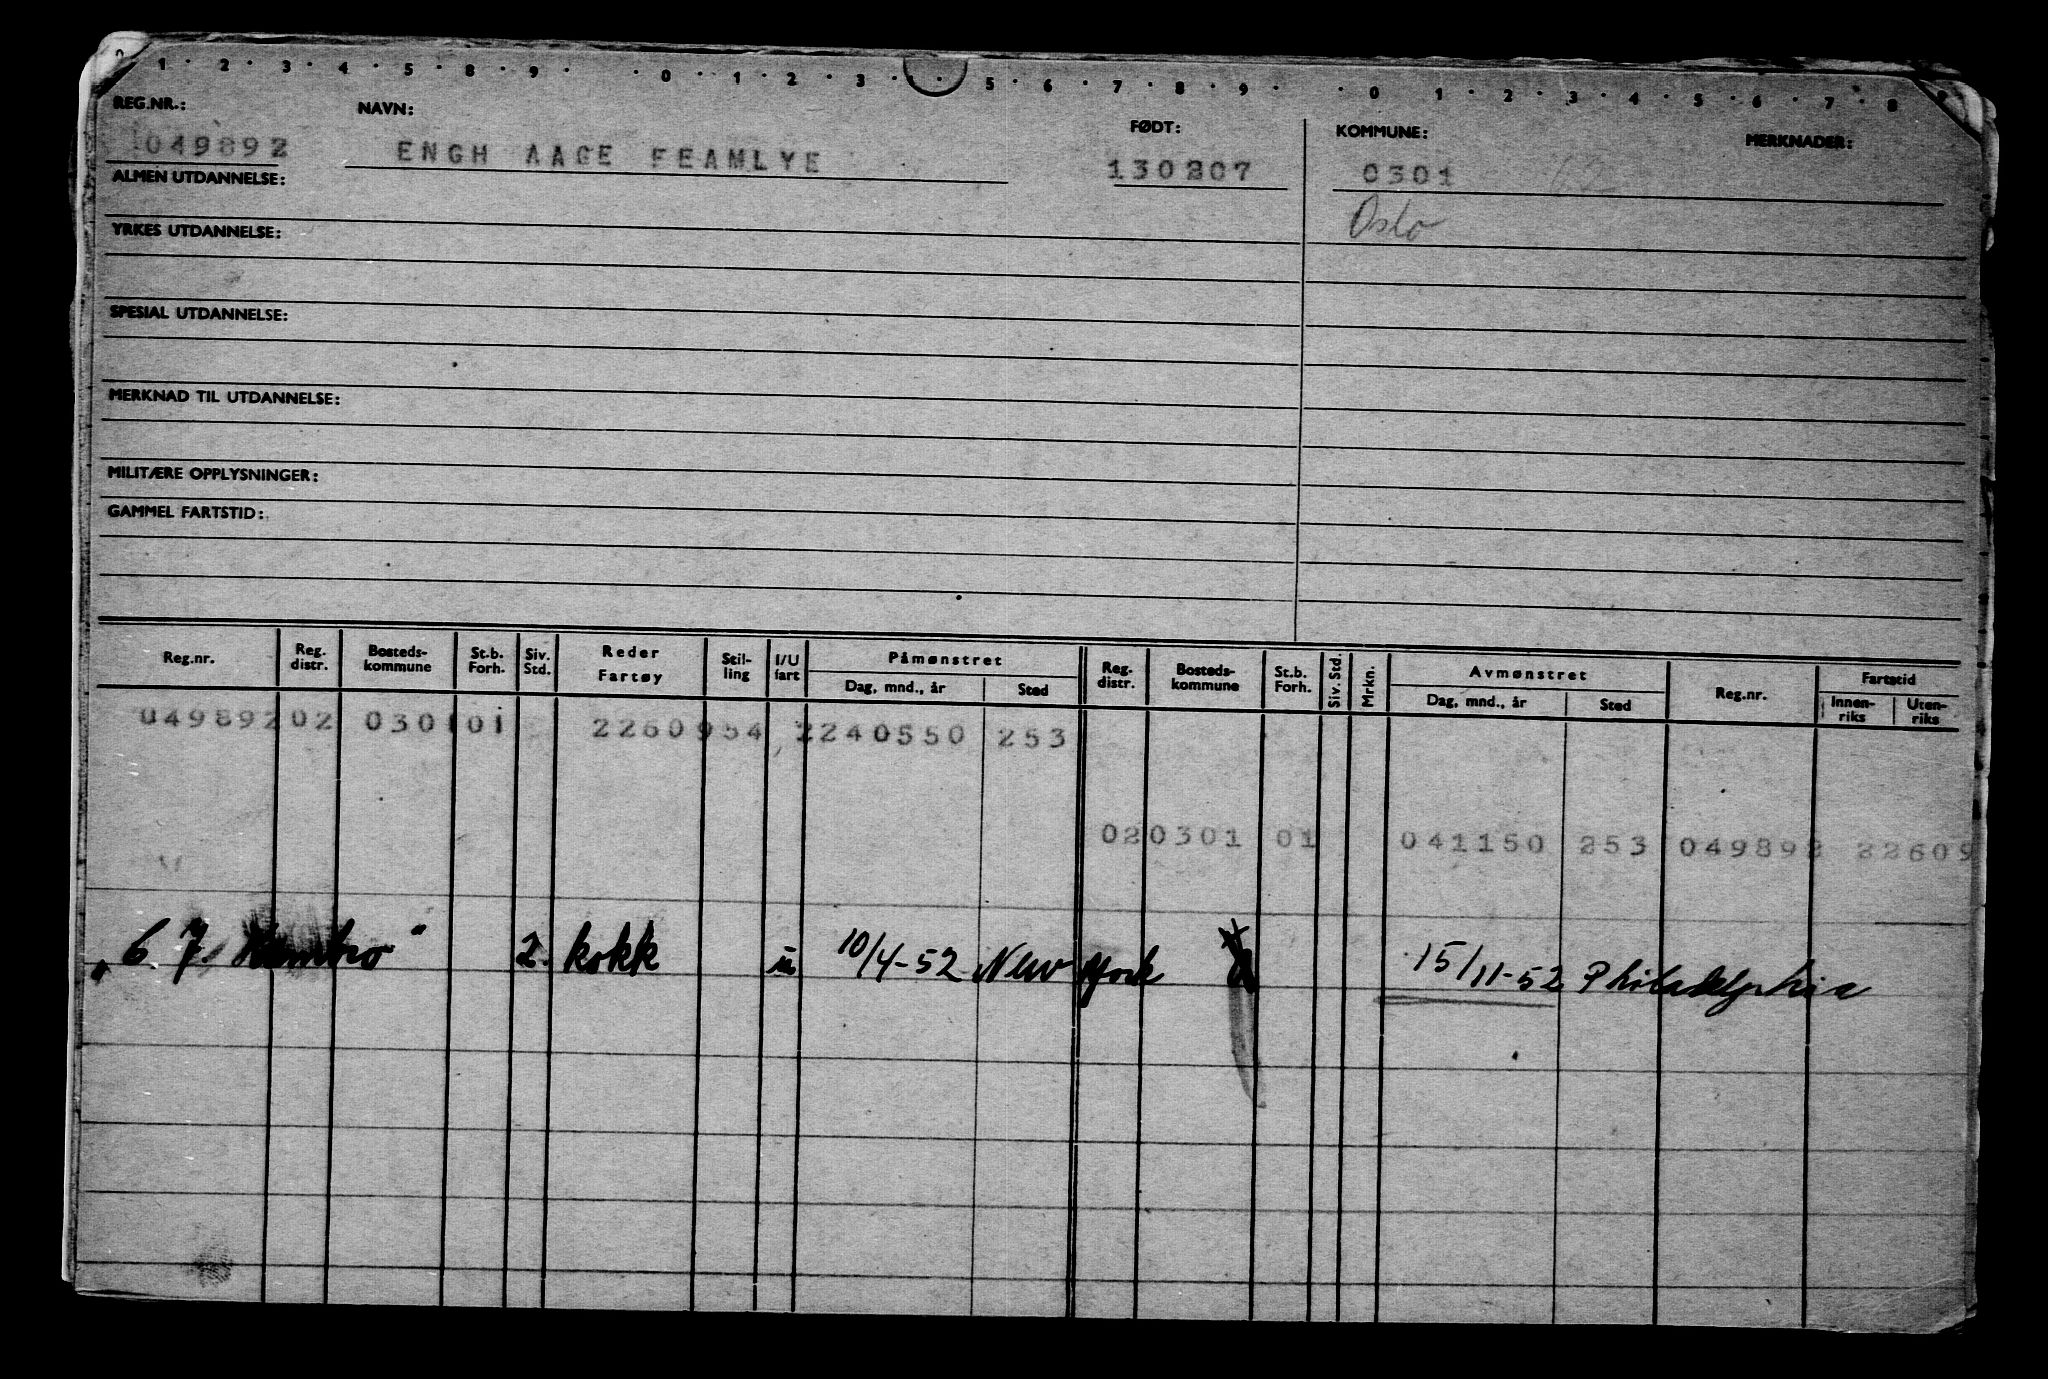 0 1 · 2 · 3 · 4 · 5 · 8 · 9 · · 0 · 1 · 2 · 3 · · 5 · 6 · 7 · 8 · 9 · · 0 · 1 · 2 · 3 · 4 · 5 · 6 · 7 · 8 · 9
REG.NR.: NAVN: FØDT: KOMMUNE: MERKNADER:
049892 ENGH AAGE FEAMLYE 130207 0301
ALMEN UTDANNELSE:
Oslo
YRKES UTDANNELSE:
SPESIAL UTDANNELSE:
MERKNAD TIL UTDANNELSE:
MILITÆRE OPPLYSNINGER:
GAMMEL FARTSTID:
Reg.nr. Reg. distr. Bosteds-kommune St.b. Forh. Siv. Std. Reder Fartøy Stil-ling I/U fart Påmønstret Dag, mnd., år Sted Reg. distr. Bosteds-kommune St.b. Forh. Siv. Std. Mrkn. Avmønstret Dag, mnd., år Sted Reg.nr. Fartstid Innen-riks Uten-riks
049892 02 0301 01 2260954 2240550 253
02 0301 01 041150 253 049892 22609
„C. J. Hambro" 2. kokk u 10/4-52 New York 15/11-52 Philadelphia